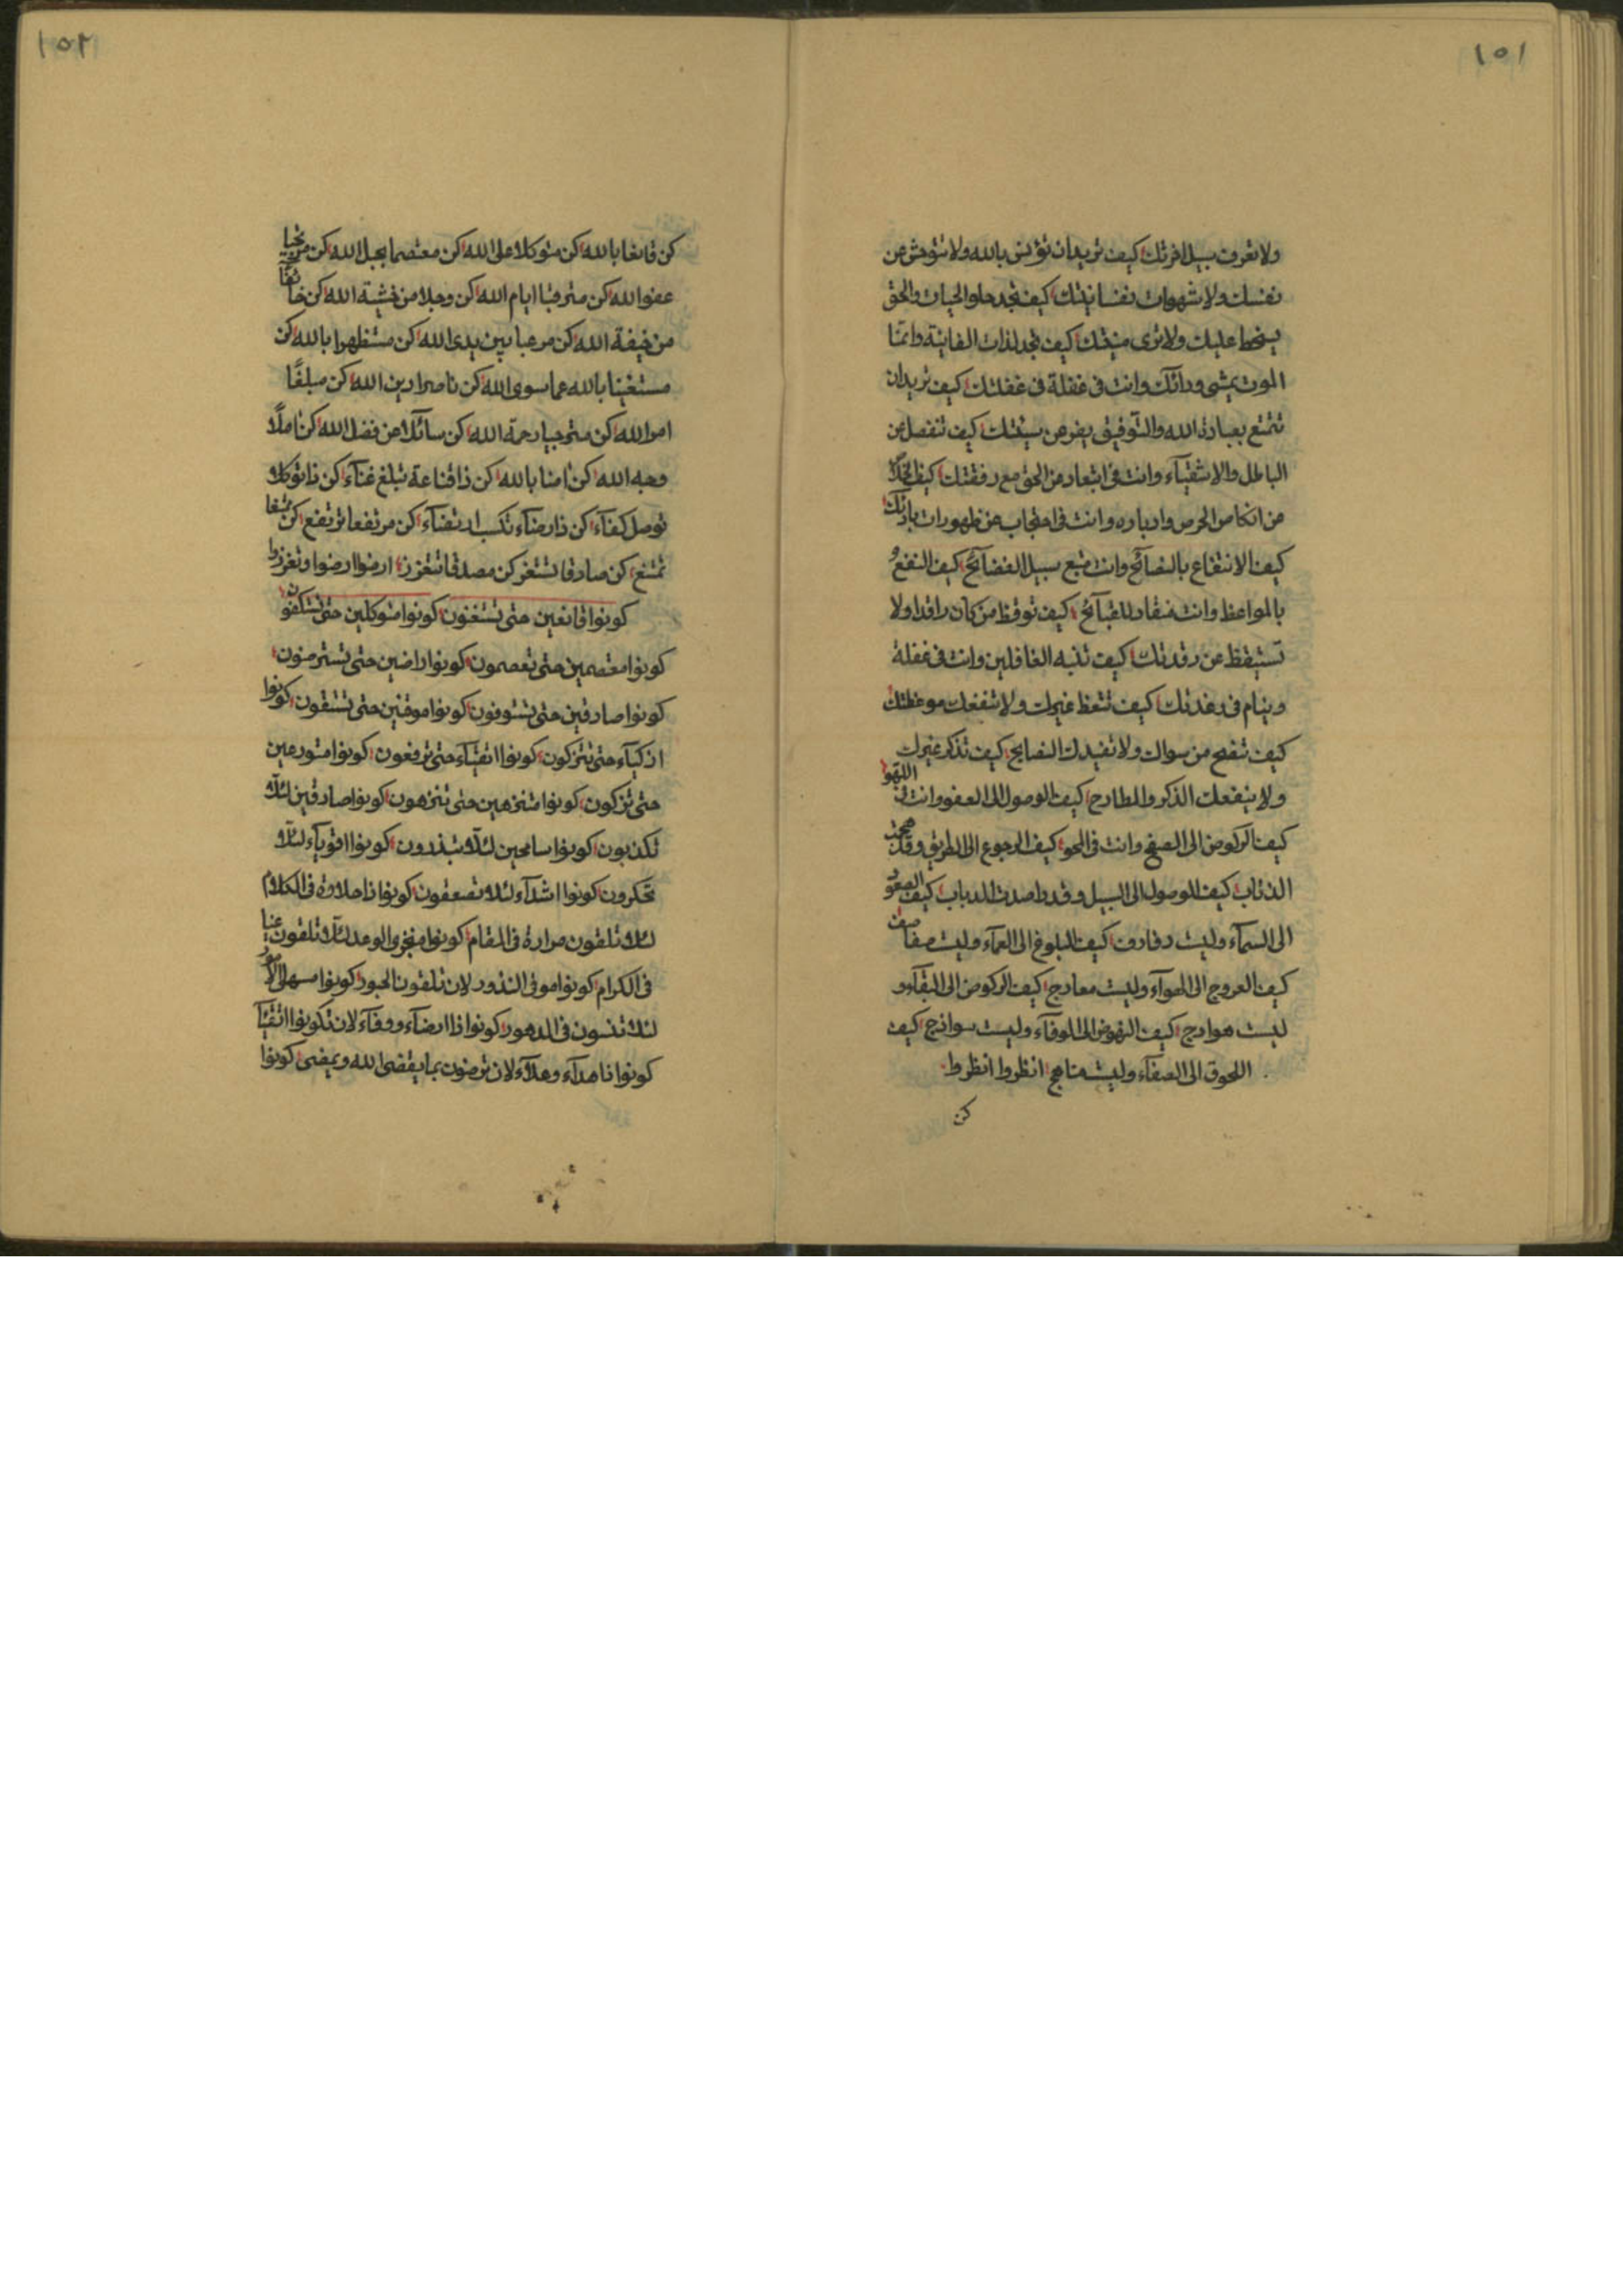 ١٥١
ولا تعرف سبيل اخرتك كيف تريد ان تؤنس بالله ولا تتوحش عن
نفسك ولا شهوات نفسانيتك كيف تجد حلو الحيات والحق
يسخط عليك ولا ترى منيتك كيف تجد لذات الفانية وانما
الموت يمشى ورائك وانت فى غفلة فى غفلتك كيف تريد ان
تتمتع بعبادة الله والتوفيق يفر من سيئتك كيف تنفصل عن
الباطل والاشقياء وانت فى ابتعاد من الحق مع رفقتك كيف
من الحرص وادباره وانت فى احتجاب عن ظهورات بارئك
كيف الانتفاع بالنصائح وانت متبع سبيل الفضائح كيف النفع و
بالمواعظ وانت منقاد للقبائح كيف توقظ من كان راقدا ولا
تستيقظ عن رقدتك كيف تنبه الغافلين وانت فى غفلة
وينام فى رغدتك كيف تتعظ غيرك ولا تنفعك موعظتك
كيف تنصح من سواك ولا تفيدك النصايح كيف تذكر غيرك
ولا ينفعك الذكر والمطارح كيف الوصول الى العفو وانت فى اللهو
كيف الركوض الى الصفح وانت فى المحو كيف الرجوع الى الطريق وقد
الذئاب كيف الوصول الى السبيل وقد واصدت الدباب كيف الصعود
الى السماء وليست رفارف كيف البلوغ الى العماء وليست صفاصف
كيف العروج الى الهواء وليست معارج كيف الركوض الى البقاء و
ليست هوادج كيف النهوض الى الوفاء وليست سوانح كيف
اللحوق الى الصفاء وليست مناهج انظروا انظروا
كن
١٥٢
كن قانعا بالله كن متوكلا على الله كن معتصما بحبل الله كن مرتجيا
عفو الله كن مترقبا ايام الله كن وجلا من خشية الله كن خائفا
من خيفة الله كن مرعبا بين يدى الله كن مستظهرا بالله كن
مستغنيا بالله عما سوى الله كن ناصرا دين الله كن مبلغا
امر الله كن مترجيا رحمة الله كن سائلا من فضل الله كن املا
وجه الله كن امنا بالله كن ذا قناعة تبلغ غناء كن ذا توكل
توصل كفاء كن ذا رضاء تكسب ارتضاء كن مرتفعا ترتفع كن
تمتنع كن صادقا تستعز كن مصدقا تتعزز ارضوا ارضوا وتعززوا
كونوا قانعين حتى تستغنون كونوا متوكلين حتى تستكفون
كونوا معتصمين حتى تعصمون كونوا راضين حتى تسترضون
كونوا صادقين حتى تستوفون كونوا موقنين حتى تستقون كونوا
ازكياء حتى تتزكون كونوا اتقياء حتى ترفعون كونوا متورعين
حتى تزكون كونوا متنزهين حتى تنزهون كونوا صادقين لئلا
تكذبون كونوا سامحين لئلا تبذرون كونوا اقوياء لئلا
تحكرون كونوا اشداء لئلا تضعفون كونوا ذا حلاوة فى الكلام
لئلا تلقون مرارة فى المقام كونوا منجزى الوعد لئلا تلقون
فى الكرام كونوا موفى النذور لان تلقون الحبور كونوا سهلى الامور
لئلا تنسون فى الدهور كونوا ذا ارضاء ووفاء لان تكونوا اتقياء
كونوا ناهداء وعلاء لان ترضون بما يقضى الله ويمضى كونوا